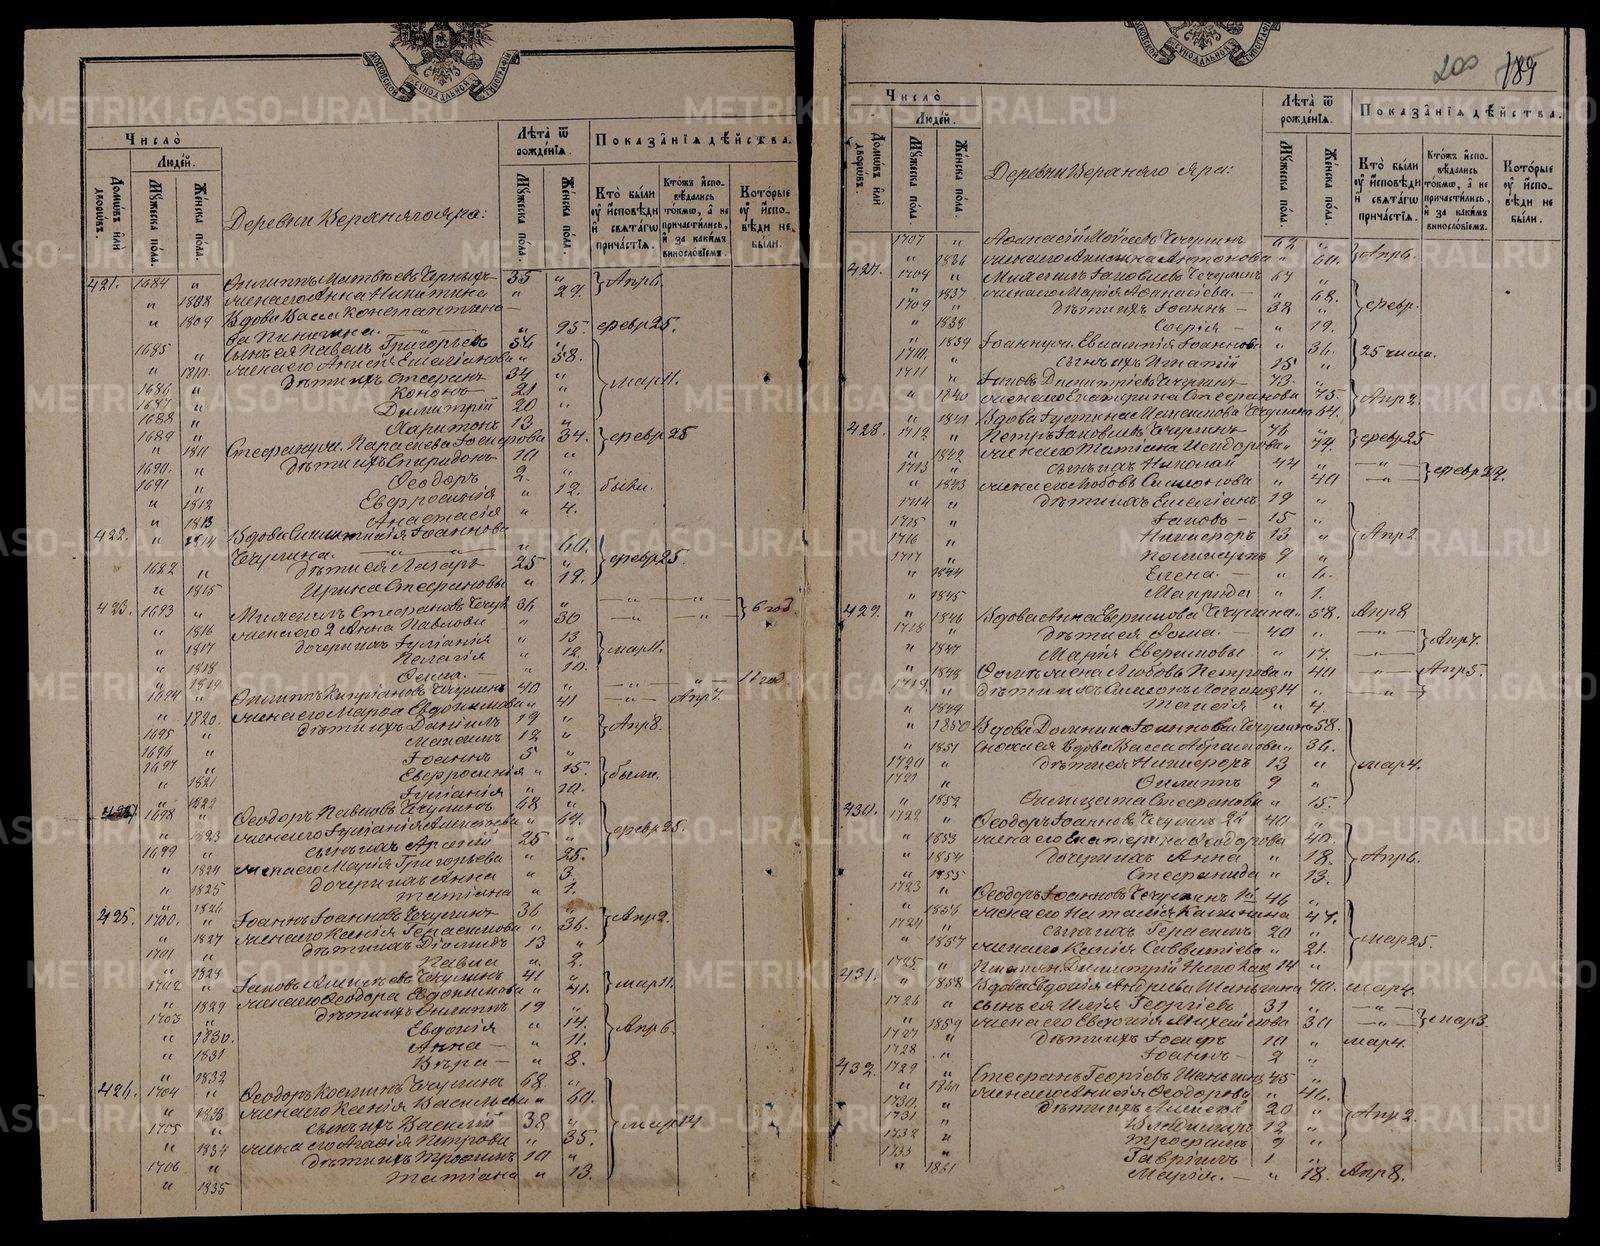 Число̀
Людей.
Домѡвъ илѝ дворѡвъ.
Мꙋжеска пола.
Женска пола.
Деревни Верхняго яра:
Лѣта ѿ рожденїѧ.
Мꙋжеска пола.
Женска пола.
Показанїѧ дѣйства.
Кто были ꙋ исповѣди и свѧтагѡ причастїѧ.
Ктожъ исповѣдались токмѡ, а не причастились, и за какимъ винословїемъ.
Которые ꙋ исповѣди не были.
421. 1684 " Филиппъ Матвѣевъ Черныхъ 35 " Апр 6.
" 1808 жена его Анна Никитина " 29.
" 1809 Вдова Васса Константино-
ва Пинигина. " 95. февр 25.
1685 " сынъ ея Павелъ Григорьевъ 56 "
" 1810. жена его Анисія Емелианова " 58.
1686 " дѣти ихъ Стефанъ 34 " мар 11.
1687 " Кононъ 21 "
1688 " Димитрій 20 "
1689 " Харитонъ 13 "
" 1811 Стефану ж. Параскева Іосифова 34. февр 25
1690. " дѣти ихъ Спиридонъ 10 "
1691 " Ѳеодоръ 2. "
" 1812 Евфросинія " 12. были.
" 1813 Анастасія " 4.
422. " 1814 Вдова Іоаннова
Чечулина. " 60. февр 25.
1692 " дѣти ея Лазарь 25 "
" 1815 Ирина Стефановы " 19.
423. 1693 " Михаилъ Стефановъ Чечул 36 " 6 год.
" 1816 жена его 2 Анна Павлова " 30
" 1817 дочери ихъ Іуліанія " 13 мар 11.
" 1818 Пелагія " 12.
" 1819 " 10. 11 год.
1694 " Филиппъ Кипріановъ Чечулинъ 40 " Апр 7.
" 1820. жена его Марѳа Евдокимова " 41
1695 " дѣти ихъ Даніилъ 19 " Апр 8.
1696 " Максимъ 12 "
1697 " Іоаннъ 5 "
" 1821 Евфросинія " 15. были.
" 1822 Іуліанія " 10.
1698 " Ѳеодоръ Павловъ Чечулинъ 68 "
" 1823 жена его Іуліанія Алексѣева " 64. февр 25.
1699 " сынъ ихъ Арсеній 25 "
" 1824 жена его Марія Григорьева " 25.
" 1825 дочери ихъ Анна " 3.
" 1826 Татіана " 1.
425. 1700. " Іоаннъ Іоанновъ Чечулинъ 36 " Апр 2.
" 1827 жена его Ксенія Герасимова " 36.
1701 " дѣти ихъ Діомидъ 13 "
" 1828 Павла " 2.
1702 " Іаковъ Алексѣевъ Чечулинъ 41 " мар 11.
" 1829 жена его Ѳеодора Евдокимова " 41.
1703 " дѣти ихъ Филиппъ 19 "
" 1830. Евдокія " 14. Апр 6.
" 1831 Анна " 11.
" 1832 Вѣра " 8.
426. 1704 " Ѳеодоръ Козминъ Чечулинъ 68 "
" 1833 жена его Ксенія Васильева " 60.
1705 " сынъ ихъ Василій 38 " мар 14
" 1834 жена его Агаѳія Петрова " 35.
1706 " дѣти ихъ Трофимъ 10 "
" 1835 Татіана " 13.
200 189
Число̀
Людей.
Домѡвъ илѝ дворѡвъ.
Мꙋжеска пола.
Женска пола.
Деревни Верхняго яра:
Лѣта ѿ рожденїѧ.
Мꙋжеска пола.
Женска пола.
Показанїѧ дѣйства.
Кто были ꙋ исповѣди и свѧтагѡ причастїѧ.
Ктожъ исповѣдались токмѡ, а не причастились, и за какимъ винословїемъ.
Которые ꙋ исповѣди не были.
1707 " Аѳанасій Моисеевъ Чечулинъ 62 " Апр 6.
" 1836 жена его Антонова " 60.
427. " Михаилъ Іаковлевъ Чечулинъ 67 "
" 1837 жена его Марія Аѳанасіева. " 68. февр.
1709 " дѣти ихъ Іоаннъ 38 "
" 1838 Софія " 19.
" 1839 Іоанну ж. Евлампія Іоаннова " 36. 25 числа.
1710. " сынъ ихъ Игнатій 15 "
1711 " Іаковъ Димитріевъ Чечулинъ 73. "
" 1840 жена его Екатерина Стефанова 75. Апр 2.
" 1841 Вдова Іустина Максимова Чечулина 64.
428. 1712 " Петръ Іаковлевъ Чечулинъ 76 " февр 25
" 1842 жена его Татіана Исидорова " 74.
1713 " сынъ ихъ Николай 44 " февр 22.
" 1843 жена его Любовь Симонова " 40
1714 " дѣти ихъ Емеліанъ 19 "
1715 " Іаковъ 15 "
1716 " Никифоръ 13 " Апр 2
1717 " 9 "
" 1844 Елена. " 6.
" 1845 Матрида " 1.
429. " 1846 Вдова Анна Еверимова Чечулина " 58. Апр 8
1718 " дѣти ея Ѳома. 40 " Апр 7.
" 1847 Марія Еверимовы " 17.
" 1848 Ѳомы жена Любовь Петрова " 40 Апр 5.
1719 " дѣти ихъ Симеонъ 14 "
" 1849 Таисія " 4.
" 1850 Вдова Домника Іоаннова Чечулина 58.
" 1851 сноха ея Вдова Васса Абрамова " 36.
1720 " дѣти ея Никифоръ 13 " мар 4.
1721 " Филиппъ 9 "
" 1852 Фелицата Стефанова " 15.
430. 1722 " Ѳеодоръ Іоанновъ Чечулинъ 2й 40 "
" 1853 жена его Екатерина Ѳеодорова 40.
" 1854 дочери ихъ Анна " 18. Апр 6.
" 1855 Стефанида " 13.
1723 " Ѳеодоръ Іоанновъ Чечулинъ 1й 46 "
" 1856 жена его Наталія Калинина 47.
1724 " сынъ ихъ Герасимъ 20 " мар 25.
" 1857 жена его Ксенія Савватіева " 21.
1725 " Димитрій 14 "
431. " 1858 Вдова Евдокія Андреева Шаньгина 70. мар 4.
1726 " сынъ ея Илія Георгіевъ 31 "
" 1859 жена его Евдокія Михайлова 30 мар 3.
1727 " дѣти ихъ Іосифъ 10 " мар 4.
1728 " Іоаннъ 2 "
432. 1729 " Стефанъ Георгіевъ Шаньгинъ 45 "
" 1860 жена его Анисія Ѳеодорова " 46.
1730. " дѣти ихъ Алексѣй 20 " Апр 2.
1731 " Владиміръ 12 "
1732 " Трофимъ 9 "
1733 " Гавріилъ 1 "
" 1861 Марія. " 18. Апр 8.